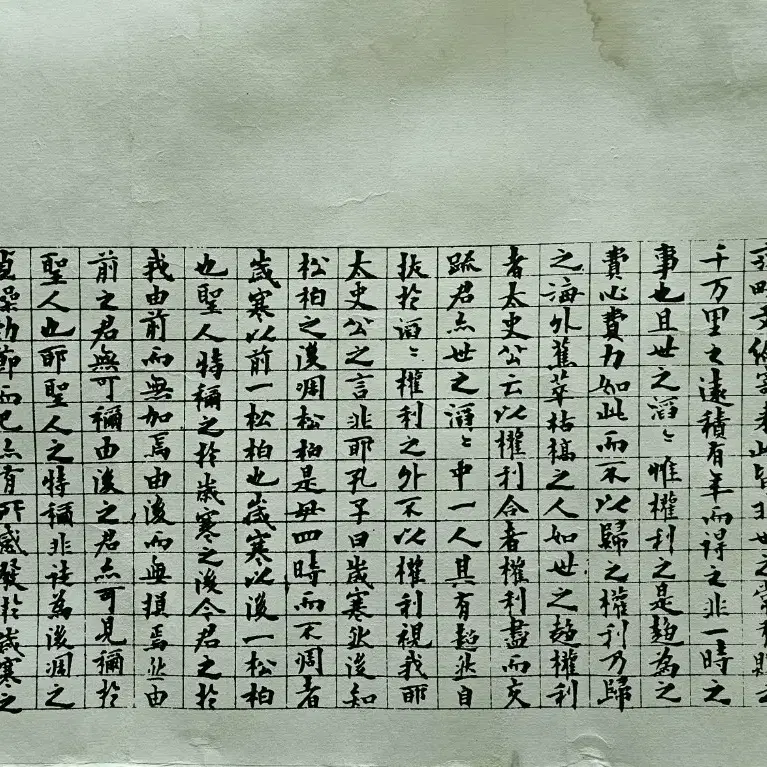 畊文編寄來此皆非世之常有購之
千万里之遠積有年而得之非一時之
事也且世之滔〻惟權利之是趨為之
費心費力如此而不以歸之權利乃歸
之海外蕉萃枯槁之人如世之趨權利
者太史公云以權利合者權利盡而交
疏君亦世之滔〻中一人其有超然自
拔於滔〻權利之外不以權利視我耶
太史公之言非耶孔子曰歲寒然後知
松柏之後凋松柏是毋四時而不凋者
歲寒以前一松柏也歲寒以後一松柏
也聖人特稱之於歲寒之後今君之於
我由前而無加焉由後而無損焉然由
前之君無可稱由後之君亦可見稱於
聖人也耶聖人之特稱非徒為後凋之
貞操勁節而已亦有所感發於歲寒之